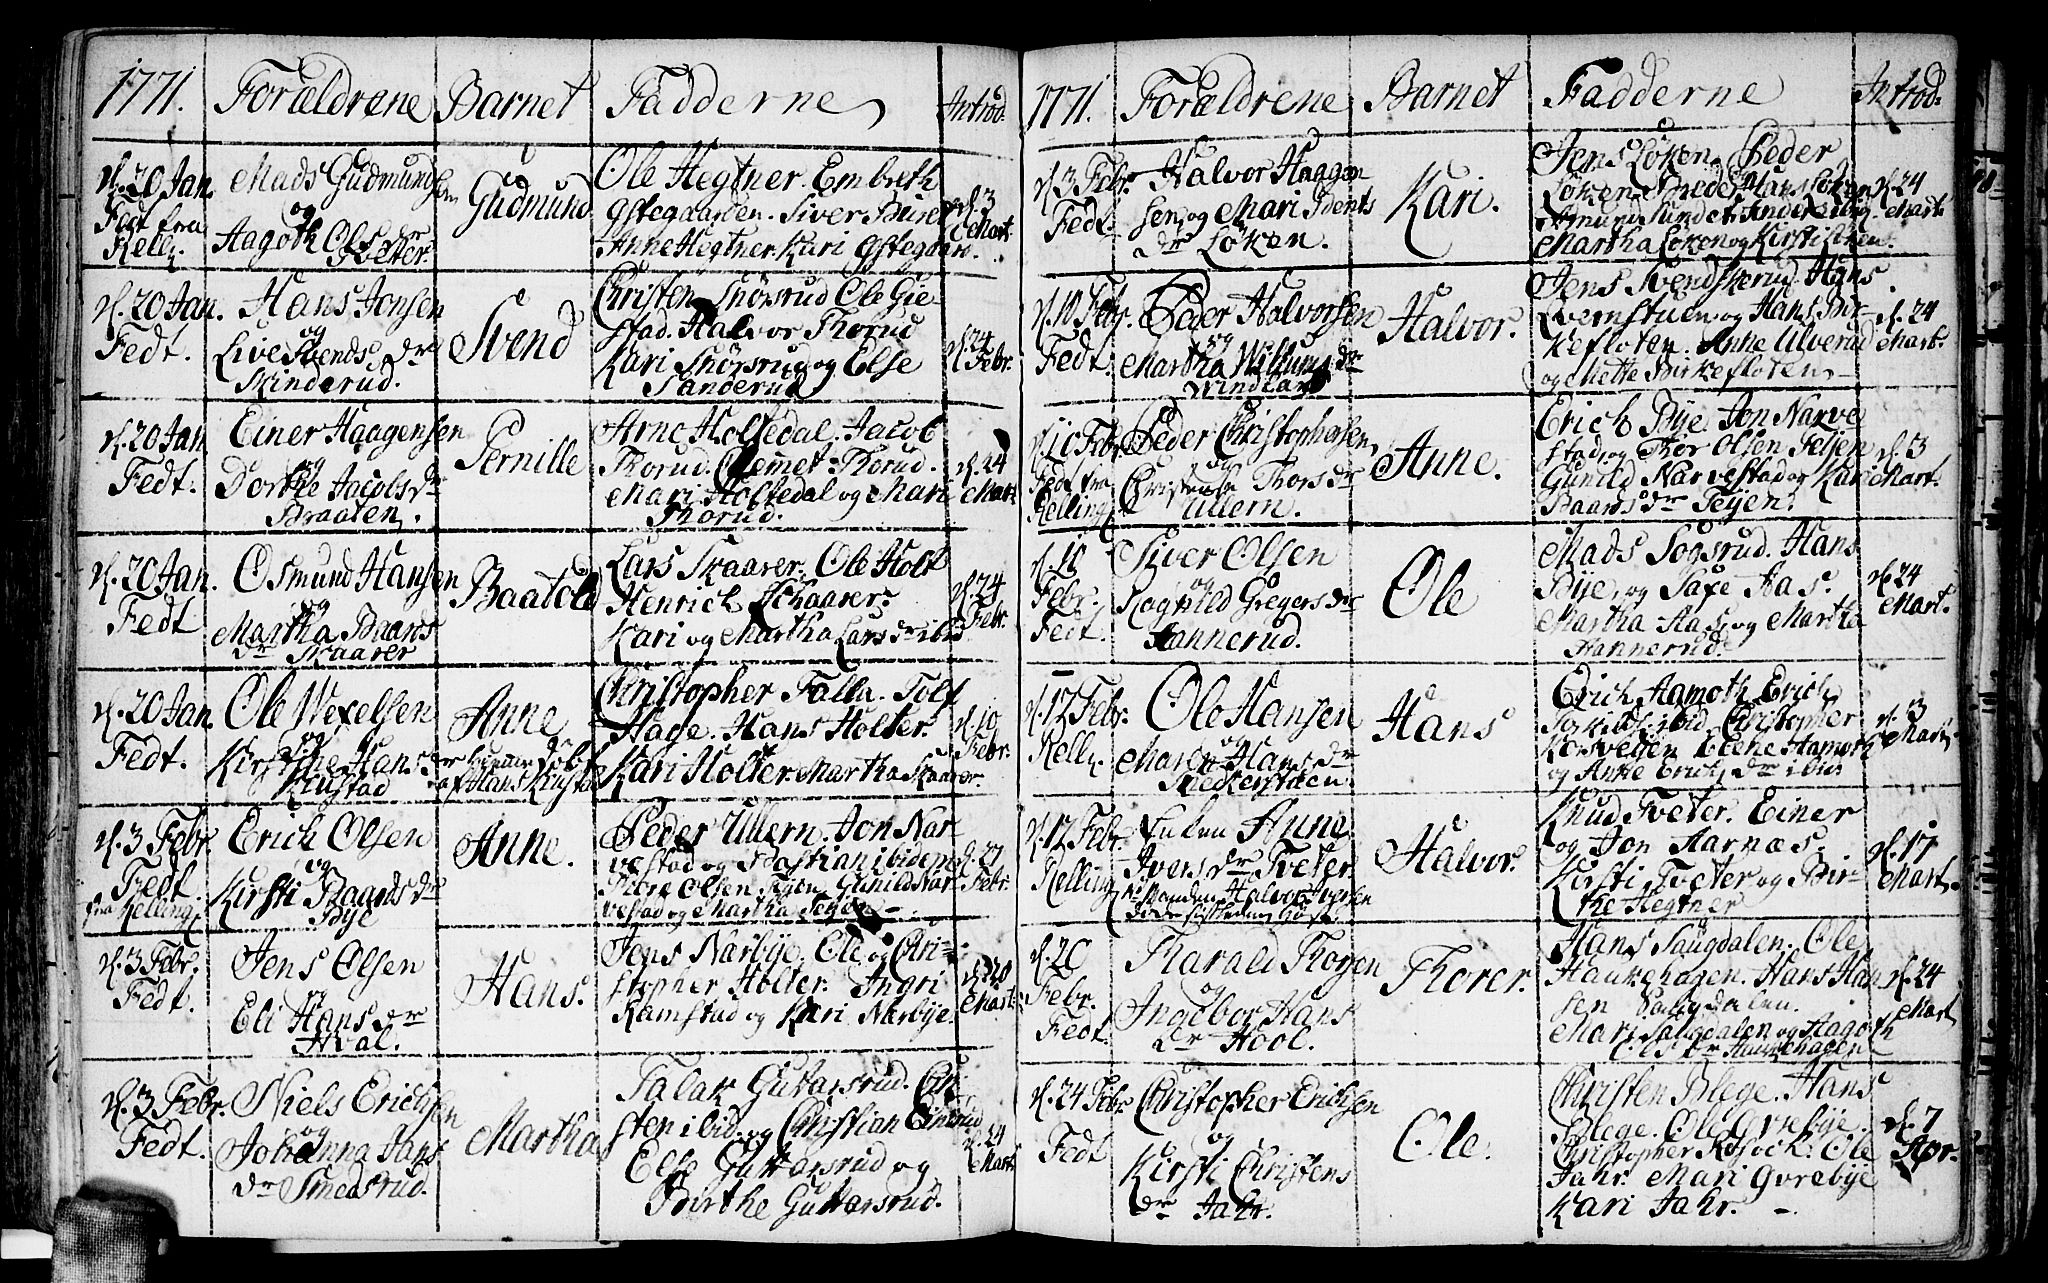 1771. Forældrene Barnet Fadderne Introd.
d. 20 Jan.
Fedt fra
Kelly
Mads Gudmundsen
og
Aagoth Ols dr
Tveter.
Gudmund
Ole Hegtner. Embreth
Østegaarden. Siver Burer
Anne Hegtner. Kari Østegaard.
d. 3
Mart.
d. 20 Jan.
Fedt.
Hans Jonsen
og
Live Svends dr
Skinderud.
Svend
Christen Thorsrud Ole Gie-
stad. Halvor Thorud
Kari Thorsrud og Else
Sanderud
d. 24
Febr.
d. 20 Jan.
Fedt.
Einer Haagensen
og
Dorthe Jacobs dr
Braaten.
Pernille
Arne Holtedal. Jacob
Thorud. Clemet Thorud.
Mari Holtedal og Mari
Thorud.
d. 24
Mart.
d. 20 Jan.
Fedt
Osmund Hansen
og
Martha Baards
dr Skaarer
Baatold
Lars Skaarer. Ole Holt
Henrich Schaarer.
Kari og Martha Lars dr ibid
d. 24
Febr.
d. 20 Jan.
Fedt.
Ole Wexelsen
og
Kirstine Hans dr
Knustad
Anne
af Hans Knustad
Christopher Falla. Tolf
Hage. Hans Holter.
Kari Holter. Martha Skaarer.
d. 10
Febr.
d. 3 Febr.
Fedt
fra Kelling
Erich Olsen
og
Kirsti Baards dr
Bye
Anne.
Peder Ullern. Jon Nar
vestad og Bastian ibidem
Thore Olsen Teyen Gunild Nar-
vestad og Martha Teyen
d. 27
Febr.
d. 3 Febr.
Fedt.
Jens Olsen
og
Eli Hans dr
Hval.
Hans.
Jens Narbye. Ole og Chri-
stopher Holter. Ingri
Ramstad og Kari Narbye.
d. 28
Mart.
d. 3 Febr.
Fedt.
Niels Erichsen
og
Johanna Jans
dr Smedsrud.
Martha
Talak Guttarsrud. Chri-
sten ibid. og Christian Einerud
Else Guttarsrud og
Birthe Guttarsrud.
d. 24
Mart.
1771. Forældrene Barnet Fadderne Introd.
d. 3 Febr.
Fedt.
Halvor Haagen
sen og Mari Bents
dr Løken.
Kari.
Jens Løken. Peder
Løken Breder Hans Løken
Amund Sundet. Anders ibid.
Martha Løken og Kirsti
d. 24
Mart.
d. 10 Febr.
Fedt.
Peder Halvorsen
og
Martha Willums dr
Windlar
Halvor.
Jens Svendskerud Hans
Kvernstuen og Hans Bir-
kefloten. Anne Ulverud
og Mette Birkefloten
d. 24
Mart.
d. 10 Febr.
Fedt fra
Kelling
Peder Christophersen
og
Christense Thors dr
Ullern.
Anne.
Erich Bye Jon Narve
stad og Thor Olsen Teyen
Gunild Narvestad og Kari
Baards dr Teyen.
d. 3
Mart.
d. 10
Febr.
Fedt.
Siver Olsen
og
Rognild Gregers dr
Hannerud.
Ole
Mads Sogsrud. Hans
Bye, og Saxe Aas.
Martha Aas, og Martha
Hannerud.
d. 24
Mart.
d. 17 Febr.
Kelly
Ole Hansen
og
Maren Hans dr
Heckerstuen.
Hans
Erich Aamoth Erich
Torkilds. ibid. Christopher
Korsvegen Lene Aamoth
og Anne Erichs dr ibid
d. 3
Mart.
d. 17 Febr.
Kelling
Enken Anne
Ivers dr Tveter.
Manden Halvor Iversen
døde sistledne Høst.
Halvor.
Knud Tveter. Einer
og Jon Aarnæs.
Kirsti Tveter og Bir
the Hegtner
d. 17
Mart.
d. 20
Febr.
Fedt.
Tharald Thorsen
og
Ingebor Hans
dr Hool.
Thorer.
Hans Saugdalen. Ole
Haukehagen. Hans Han
sen Saugdalen.
Mari Saugdalen og Aagoth
Ols dr Haukehagen
d. 24
Mart
d. 24 Febr
Fedt
Christopher Erichsen
og
Kirsti Christens
dr Jahr.
Ole.
Christen Blege. Hans
Blege. Ole Gvrebye.
Christopher Ole
Jahr. Mari Gvrebye
Kari Jahr.
d. 7
Apr.